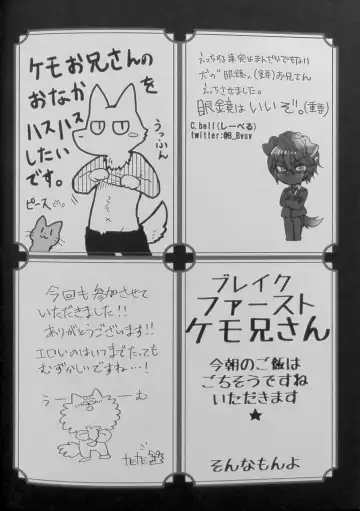 ケモお兄さんの
おなかを
ハスハス
したい
です。
ピース
うっふん
えっちな事実はまんがですないり
犬の"眼鏡"(重要)お兄さん
えっちさせました。
眼鏡はいいぞ。(重要)
C.bell(しーべる)
twitter:@B_Bvov
今回も参加させて
いただきました!!
ありがとうございます!!
エロいのはいつまでたっても
むずかしいですね…!
うーーむ
ブレイク
ファースト
ケモ兄さん
今朝のご飯は
ごちそうですね
いただきます
★
そんなもんよ